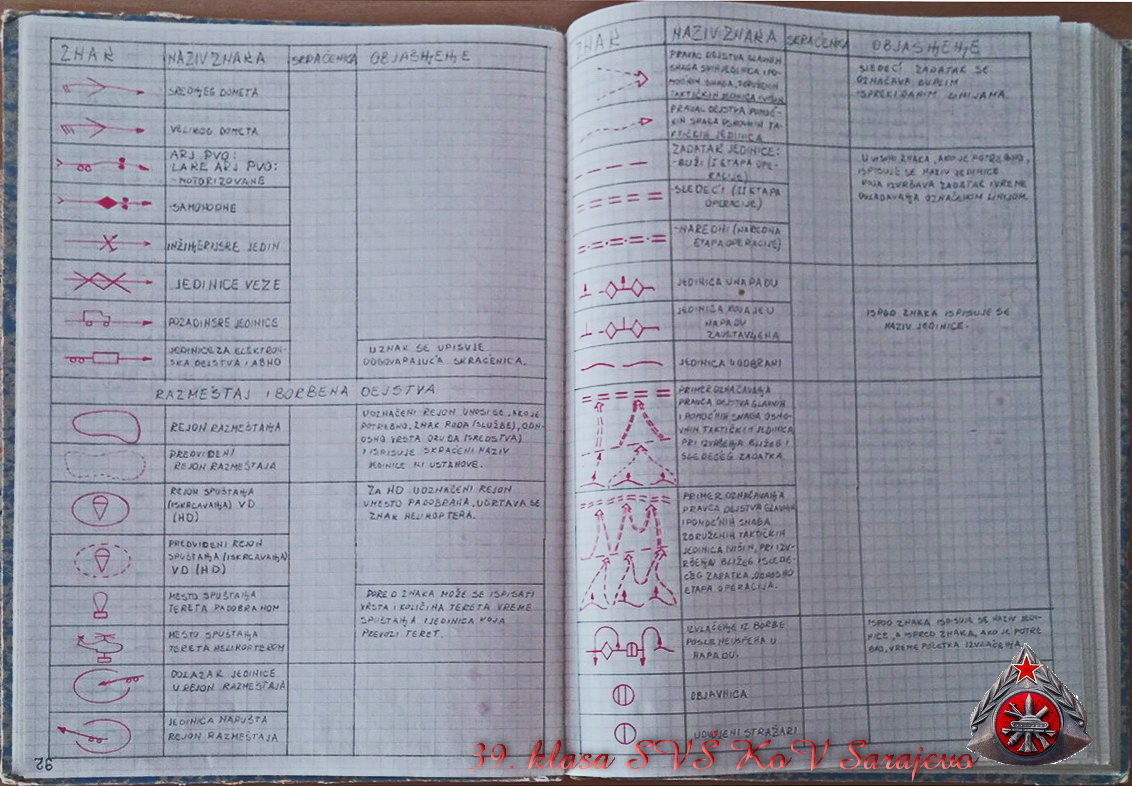 ZNAK NAZIV ZNAKA SKRAĆENICA OBJAŠNJENJE
SREDNJEG DOMETA
VELIKOG DOMETA
ARJ PVO:
LARE ARJ PVO:
-MOTORIZOVANE
-SAMOHODNE
INŽINJERIJSKE JEDIN
JEDINICE VEZE
POZADINSKE JEDINICE
JEDINICE ZA ELEKTRON-
SKA DEJSTVA I ABHO
U ZNAK SE UPISUJE
ODGOVARAJUĆA SKRAĆENICA.
RAZMEŠTAJ I BORBENA DEJSTVA
REJON RAZMEŠTANJA
U OZNAČENI REJON UNOSI SE, AKO JE
POTREBNO, ZNAK RODA (SLUŽBE), ODN-
OSNO VRSTA ORUĐA (SREDSTVA)
I ISPISUJE SKRAĆENI NAZIV
JEDINICE ILI USTANOVE.
PREDVIĐENI
REJON RAZMEŠTAJA
REJON SPUŠTANJA
(ISKRCAVANJA) VD
(HD)
ZA HD U OZNAČENI REJON
UMESTO PADOBRANA, UCRTAVA SE
ZNAK HELIKOPTERA.
PREDVIĐENI REJON
SPUŠTANJA (ISKRCAVANJA)
VD (HD)
MESTO SPUŠTANJA
TERETA PADOBRANOM
PORED ZNAKA MOŽE SE ISPISATI
VRSTA I KOLIČINA TERETA VREME
SPUŠTANJA I JEDINICA KOJA
PREVOZI TERET.
MESTO SPUŠTANJA
TERETA HELIKOPTEROM
DOLAZAK JEDINICE
U REJON RAZMEŠTAJA
JEDINICA NAPUŠTA
REJON RAZMEŠTAJA
92
ZNAK NAZIV ZNAKA SKRAĆENKA OBJAŠNJENJE
PRAVAC DEJSTVA GLAVNIH
SNAGA SVIH JEDINICA I PO-
MOĆNIH SNAGA ZDRUŽENIH
TAKTIČKIH JEDINICA I VIŠIH
SLEDEĆI ZADATAK SE
OZNAČAVA DUPLIM
ISPREKIDANIM LINIJAMA.
PRAVAC DEJSTVA POMOĆ-
NIH SNAGA OSNOVNIH TA-
KTIČKIH JEDINICA
ZADATAK JEDINICE:
-BLIŽI (I ETAPA OPE-
RACIJE)
U VISINI ZNAKA, AKO JE POTREBNO,
ISPISUJE SE NAZIV JEDINICE
KOJA IZVRŠAVA ZADATAK I VREME
OVLADAVANJA OZNAČENIM LINIJOM
-SLEDEĆI (II ETAPA
OPERACIJE)
-NAREDNI (NAREDNA
ETAPA OPERACIJE)
JEDINICA U NAPADU
JEDINICA KOJA JE U
NAPADU
ZAUSTAVLJENA
ISPOD ZNAKA ISPISUJE SE
NAZIV JEDINICE.
JEDINICA U ODBRANI
PRIMER OZNAČAVANJA
PRAVCA DEJSTVA GLAVNIH
I POMOĆNIH SNAGA OSNO-
VNIH TAKTIČKIH JEDINICA
PRI IZVRŠENJU BLIŽEG I
SLEDEĆEG ZADATKA.
PRIMER OZNAČAVANJA
PRAVCA DEJSTVA GLAVNIH
I POMOĆNIH SNAGA
ZDRUŽENIH TAKTIČKIH
JEDINICA I VIŠIH, PRI IZV-
RŠENJU BLIŽEG I SLEDE-
ĆEG ZADATKA, ODNOSNO
ETAPA OPERACIJA.
IZVLAČENJE IZ BORBE
POSLE NEUSPEHA U
NAPADU.
ISPOD ZNAKA ISPISUJE SE NAZIV JEDI-
NICE, A ISPRED ZNAKA, AKO JE POTRE-
BNO, VREME POČETKA IZVLAČENJA.
OBJAVNICA
UDVOJENI STRAŽARI
39. klasa SVS KoV Sarajevo